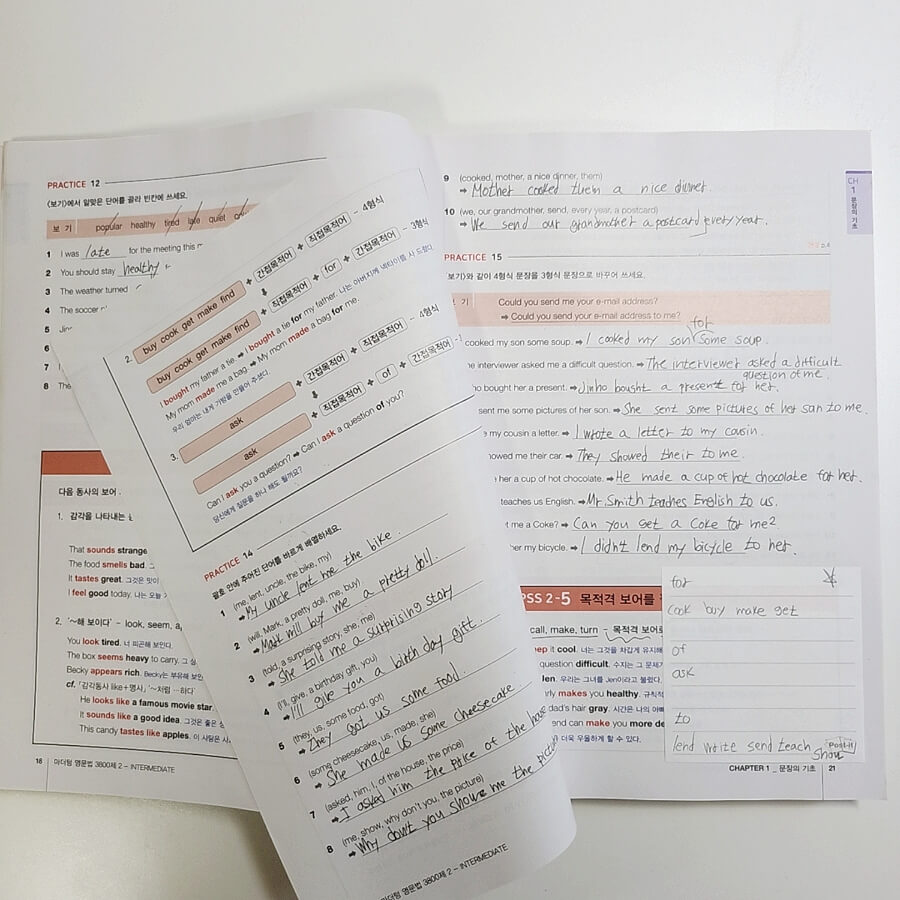 PRACTICE 12
〈보기〉에서 알맞은 단어를 골라 빈칸에 쓰세요.
보 기 popular healthy tired late quiet
1 I was late for the meeting this
2 You should stay healthy
3 The weather turned
4 The soccer
5
6
7
8 The
다음 동사의 보어
1. 감각을 나타내는
That sounds strange
The food smells bad.
It tastes great. 그것은 맛이
I feel good today. 나는 오늘
2. '~해 보이다' - look, seem,
You look tired. 너 피곤해 보인다.
The box seems heavy to carry. 그
Becky appears rich. Becky는 부유해 보인
cf. 「감각동사 like+명사」 '~처럼 …하다'
He looks like a famous movie star
It sounds like a good idea. 그것은 좋은
This candy tastes like apples. 이 사탕은
18 마더텅 영문법 3800제 2 - INTERMEDIATE
2. buy cook get make find + 간접목적어 + 직접목적어 - 4형식
buy cook get make find + 직접목적어 + for + 간접목적어 - 3형식
I bought my father a tie. ➡ I bought a tie for my father. 나는 아버지께 넥타이를 사 드렸다.
My mom made me a bag. ➡ My mom made a bag for me.
우리 엄마는 내게 가방을 만들어 주셨다.
3. ask + 간접목적어 + 직접목적어 - 4형식
ask + 직접목적어 + of + 간접목적어
Can I ask you a question? ➡ Can I ask a question of you?
당신에게 질문을 하나 해도 될까요?
PRACTICE 14
괄호 안에 주어진 단어를 바르게 배열하세요.
1 (me, lent, uncle, the bike, my)
➡ My uncle lent me the bike.
2 (will, Mark, a pretty doll, me, buy)
➡ Mark will buy me a pretty doll.
3 (told, a surprising story, she, me)
➡ She told me a surprising story
4 (I'll, give, a birthday gift, you)
➡ I'll give you a birth day gift.
5 (they, us, some food, got)
➡ They got us some food.
6 (some cheesecake, us, made, she)
➡ She made us some cheesecake.
7 (asked, him, I, of the house, the price)
➡ I asked him the price of the house
8 (me, show, why don't you, the picture)
➡ Why don't you show me the picture
마더텅 영문법 3800제 2 - INTERMEDIATE
9 (cooked, mother, a nice dinner, them)
➡ Mother cooked them a nice dinner.
10 (we, our grandmother, send, every year, a postcard)
➡ We send our grandmother a postcard every year.
p.4
CH 1 문장의 기초
PRACTICE 15
보기〉와 같이 4형식 문장을 3형식 문장으로 바꾸어 쓰세요.
기 Could you send me your e-mail address?
➡ Could you send your e-mail address to me?
for
cooked my son some soup. ➡ I cooked my son some soup.
interviewer asked me a difficult question. ➡ The interviewer asked a difficult
question of me.
bought her a present. ➡ bought a present for her.
sent me some pictures of her son. ➡ She sent some pictures of her son to me.
my cousin a letter. ➡ I wrote a letter to my cousin.
me their car. ➡ They showed their to me.
her a cup of hot chocolate. ➡ He made a cup of hot chocolate for her.
teaches us English. ➡ Mr.Smith teaches English to us.
me a Coke? ➡ Can you get a Coke for me?
her my bicycle. ➡ I didn't lend my bicycle to her.
PSS 2-5 목적격 보어를
call, make, turn - 목적격 보어로
it cool. 너는 그것을 차갑게 유지해
question difficult. 수지는 그 문제가
우리는 그녀를 Jen이라고 불렀다.
makes you healthy. 규칙적
dad's hair gray. 시간은 나의 아빠
and can make you more
더욱 우울하게 할 수 있다.
for
cook buy make get
of
ask
to
lend write send teach show
Post-it
CHAPTER 1 _ 문장의 기초 21